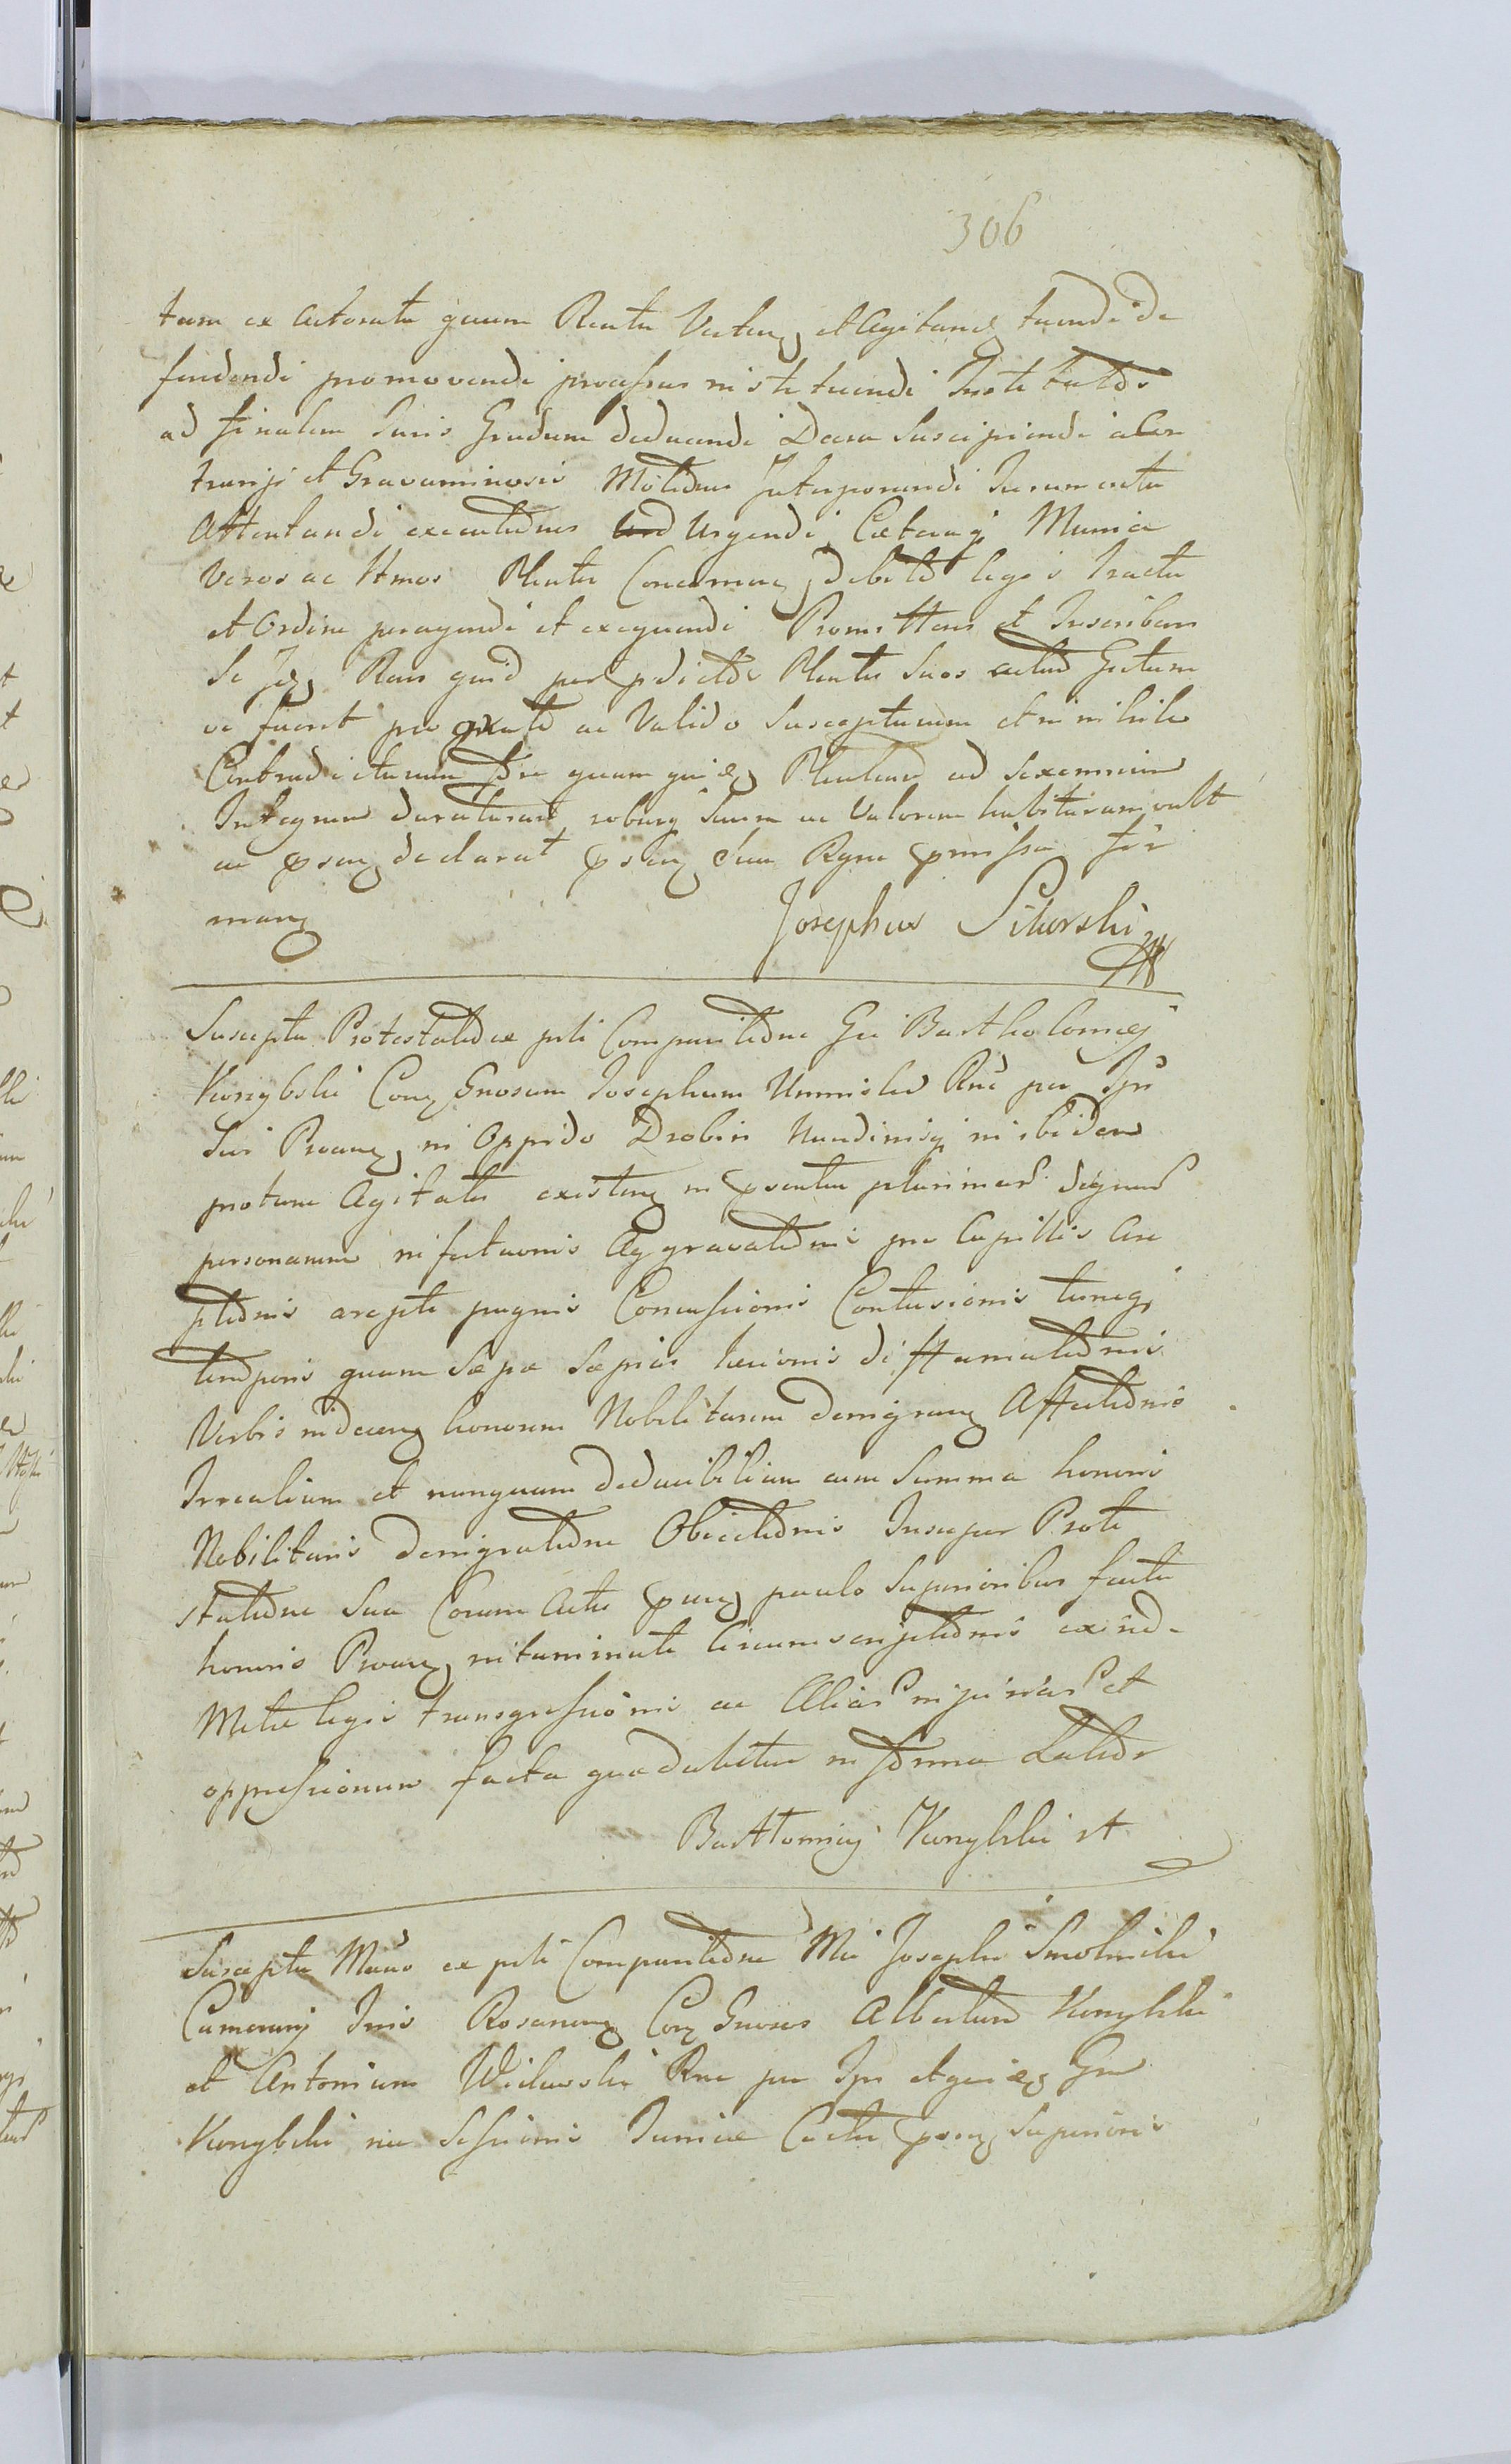 306
tam ex Actoratu quam Reatu Vertens et Agitans tuendi de
fendendi promovendi processus instituendi Institutos
ad finalem Juris Gradum deducendi Decreta Suscipiendi a Con
trarijs et Gravaminosis Motiones Interponendi Juramenta
Attentandi executiones Urgendi Caeteraq Munia
Veros ac Ittmos Plentes Concernens debito legis Tractu
et Ordine peragendi et exequendi Promittens et Inscribens
Se Idq Rans quid per pdictos Plentes Suos actum Gestum
ve fuerit pro grato ac Valido Suscepturum et in nihilo
Contradicturum quam quidem ad Sexennium
Integrum duraturam roburq Suum ac Valorem habituram vult
ac psens declarat psens Sua Rgne pmissa fir
mans Josephus Sikorski
Suscepta Protestatio ex psti Comparitione Gsi Bartholomaej
Konybski Cora Gnosum Josephum Uminski Rne per Ipm
Sui Proam in Oppido Drobin Nundinisq in ibidem
protunc Agitatis existen in psentia plurimar dignar
personarum infestaonis Aggravationis pro Capillis Arre
ptionis arepti pugnis Concussionis Contusionis tuncq
temporis quam Saepe Saepius Laesionis diffamationis
Verbis indecens honorem Nobilitarem denigrans Affectionis
Irrealium et nunquam deducibilium cum Summa honoris
Nobilitaris denigratione Obiectionis Insuper Prote
statione Sua Coram Actis psens paulo Superioribus facta
honoris Proam intaminati Circumscriptionis exind
Metae legis transgressionis ac Aliar injuriar et
oppressionum facta quae dabitur in forma Latiori
Bartlomiej Konybski
Suscepta Manif ex psti Comparitione Mci Josephi Smolinski
Camerarij Tris Rosanens Cora Gnosos Albertum Konybski
et Antonium Wilewski Rne per Ipm et quidem Gsum
Konybski in Sessionis Junioe Castri psens Superioris